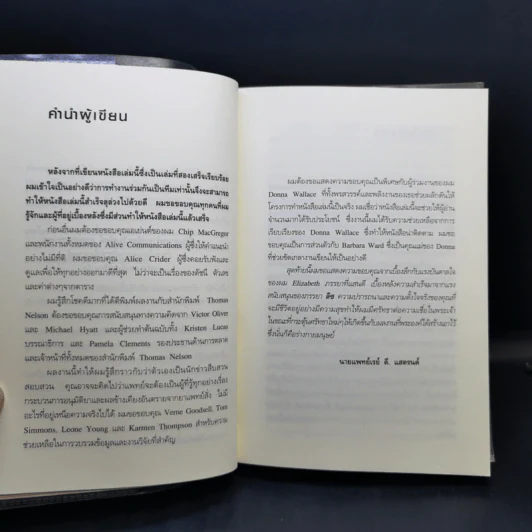 คำนำผู้เขียน
หลังจากที่เขียนหนังสือเล่มนี้ซึ่งเป็นเล่มที่สองเสร็จเรียบร้อย
ผมเข้าใจเป็นอย่างดีว่าการทำงานร่วมกันเป็นทีมเท่านั้นจึงจะสามารถ
ทำให้หนังสือเล่มนี้สำเร็จลุล่วงไปด้วยดี ผมขอขอบคุณทุกคนที่ผม
รู้จักและผู้ที่อยู่เบื้องหลังซึ่งมีส่วนทำให้หนังสือเล่มนี้แล้วเสร็จ
ก่อนอื่นผมต้องขอขอบคุณเอเย่นต์ของผม Chip MacGregor
และพนักงานทั้งหมดของ Alive Communications ผู้ซึ่งให้คำแนะนำ
อย่างไม่มีที่ติ ผมขอขอบคุณ Alice Crider ผู้ซึ่งคอยรับฟังและ
ดูแลเพื่อให้ทุกอย่างออกมาดีที่สุด ไม่ว่าจะเป็นเรื่องของดัชนี ตัวเลข
และค่าต่างๆจากตาราง
ผมรู้สึกโชคดีมากที่ได้ตีพิมพ์ผลงานกับสำนักพิมพ์ Thomas
Nelson ต้องขอขอบคุณการสนับสนุนทางความคิดจาก Victor Oliver
และ Michael Hyatt และผู้ช่วยทำต้นฉบับทั้ง Kristen Lucas
บรรณาธิการ และ Pamela Clements รองประธานด้านการตลาด
และเจ้าหน้าที่ทั้งหมดของสำนักพิมพ์ Thomas Nelson
ผลงานนี้ทำให้ผมรู้สึกราวกับว่าตัวเองเป็นนักข่าวสืบสวน
สอบสวน คุณอาจจะคิดไปว่าแพทย์จะต้องเป็นผู้ที่รู้ทุกอย่างเรื่อง
กระบวนการอนุมัติยาและผลข้างเคียงอันตรายจากยาแพทย์สั่ง ไม่มี
อะไรที่อยู่เหนือความจริงไปได้ ผมขอขอบคุณ Verne Goodsell, Tom
Simmons, Leone Young และ Karsten Thompson สำหรับความ
ช่วยเหลือในการรวบรวมข้อมูลและงานวิจัยที่สำคัญ
ผมต้องขอแสดงความขอบคุณเป็นพิเศษกับผู้ร่วมงานของผม
Donna Wallace ที่ทั้งพรสวรรค์และพลังงานของเธอช่วยผลักดันให้
โครงการทำหนังสือเล่มนี้เป็นจริง ผมเชื่อว่าหนังสือเล่มนี้จะช่วยให้ผู้อ่าน
จำนวนมากได้รับประโยชน์ ซึ่งงานนี้ผมได้รับความช่วยเหลือจากการ
เรียบเรียงของ Donna Wallace ซึ่งทำให้หนังสือน่าติดตาม ผมขอ
ขอบคุณเป็นการส่วนตัวกับ Barbara Ward ซึ่งเป็นคุณแม่ของ Donna
ที่ช่วยขัดเกลางานเขียนให้เป็นอย่างดี
สุดท้ายนี้ผมขอแสดงความขอบคุณจากเบื้องลึกกับแรงบันดาลใจ
ของผม Elizabeth ภรรยาที่แสนดี เบื้องหลังความสำเร็จมาจากแรง
ซึ่งนั่นก็คือร่างกายมนุษย์
นายแพทย์เรย์ ดี. แสตรนด์